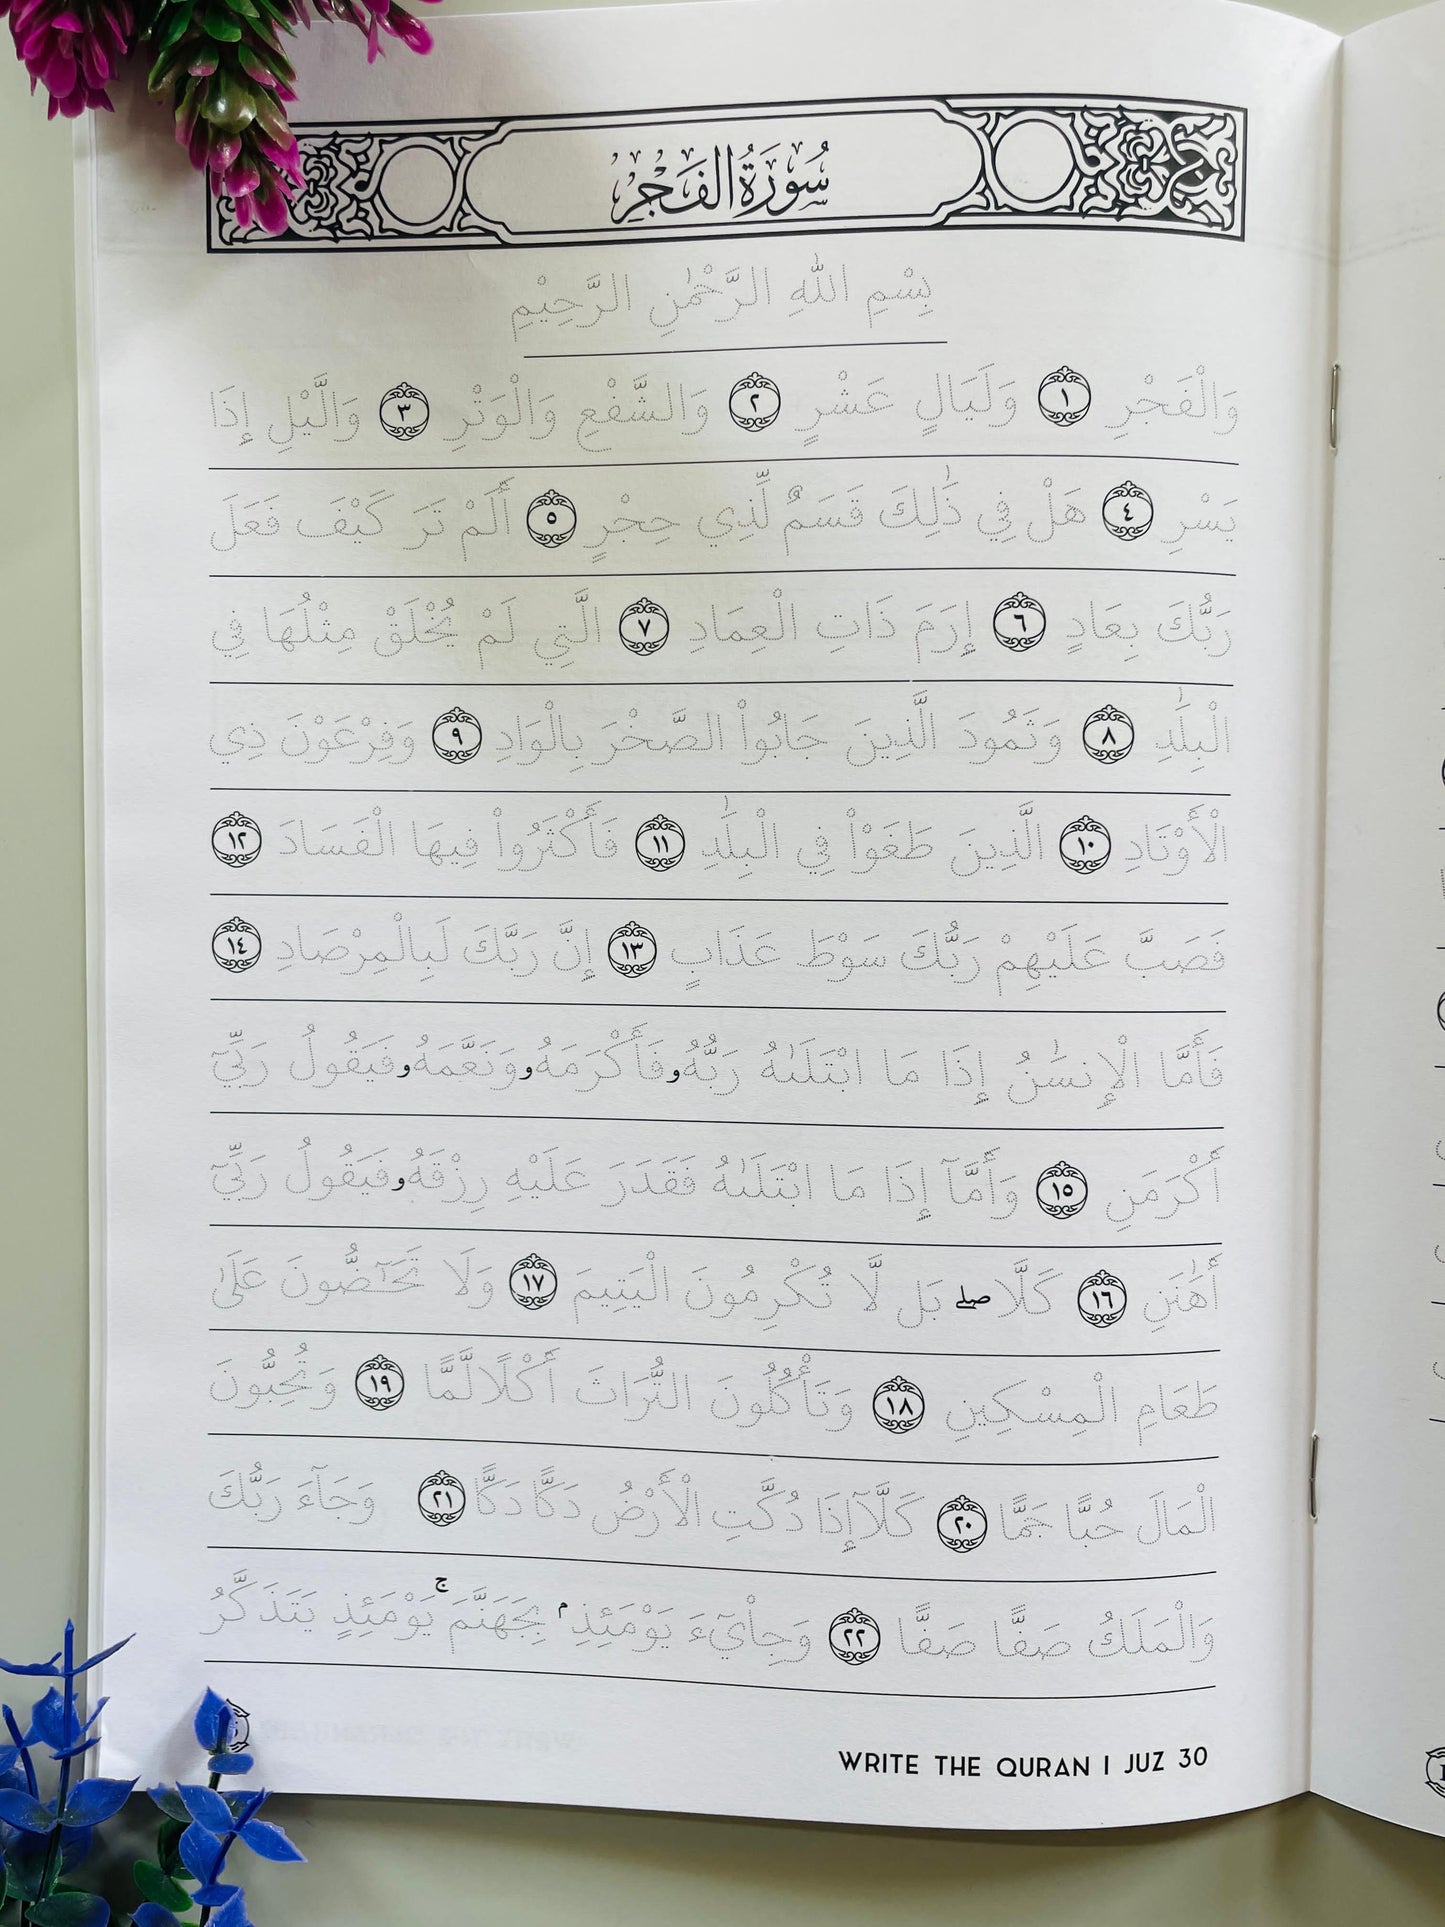 سُورَةُ الفَجْرِ
بِسْمِ اللّٰهِ الرَّحْمٰنِ الرَّحِيْمِ
وَالْفَجْرِ ١ وَلَيَالٍ عَشْرٍ ٢ وَالشَّفْعِ وَالْوَتْرِ ٣ وَالَّيْلِ إِذَا
يَسْرِ ٤ هَلْ فِي ذَٰلِكَ قَسَمٌ لِّذِي حِجْرٍ ٥ أَلَمْ تَرَ كَيْفَ فَعَلَ
رَبُّكَ بِعَادٍ ٦ إِرَمَ ذَاتِ الْعِمَادِ ٧ الَّتِي لَمْ يُخْلَقْ مِثْلُهَا فِي
الْبِلَٰدِ ٨ وَثَمُودَ الَّذِينَ جَابُواْ الصَّخْرَ بِالْوَادِ ٩ وَفِرْعَوْنَ ذِي
الْأَوْتَادِ ١٠ الَّذِينَ طَغَوْاْ فِي الْبِلَٰدِ ١١ فَأَكْثَرُواْ فِيهَا الْفَسَادَ ١٢
فَصَبَّ عَلَيْهِمْ رَبُّكَ سَوْطَ عَذَابٍ ١٣ إِنَّ رَبَّكَ لَبِالْمِرْصَادِ ١٤
فَأَمَّا الْإِنسَٰنُ إِذَا مَا ابْتَلَىٰهُ رَبُّهُۥ فَأَكْرَمَهُۥ وَنَعَّمَهُۥ فَيَقُولُ رَبِّيٓ
أَكْرَمَنِ ١٥ وَأَمَّآ إِذَا مَا ابْتَلَىٰهُ فَقَدَرَ عَلَيْهِ رِزْقَهُۥ فَيَقُولُ رَبِّيٓ
أَهَٰنَنِ ١٦ كَلَّا ۖ بَل لَّا تُكْرِمُونَ الْيَتِيمَ ١٧ وَلَا تَحَٰٓضُّونَ عَلَىٰ
طَعَامِ الْمِسْكِينِ ١٨ وَتَأْكُلُونَ التُّرَاثَ أَكْلًا لَّمًّا ١٩ وَتُحِبُّونَ
الْمَالَ حُبًّا جَمًّا ٢٠ كَلَّآ إِذَا دُكَّتِ الْأَرْضُ دَكًّا دَكًّا ٢١ وَجَآءَ رَبُّكَ
وَالْمَلَكُ صَفًّا صَفًّا ٢٢ وَجِاْيٓءَ يَوْمَئِذِۭ بِجَهَنَّمَ ۚ يَوْمَئِذٍ يَتَذَكَّرُ
WRITE THE QURAN | JUZ 30